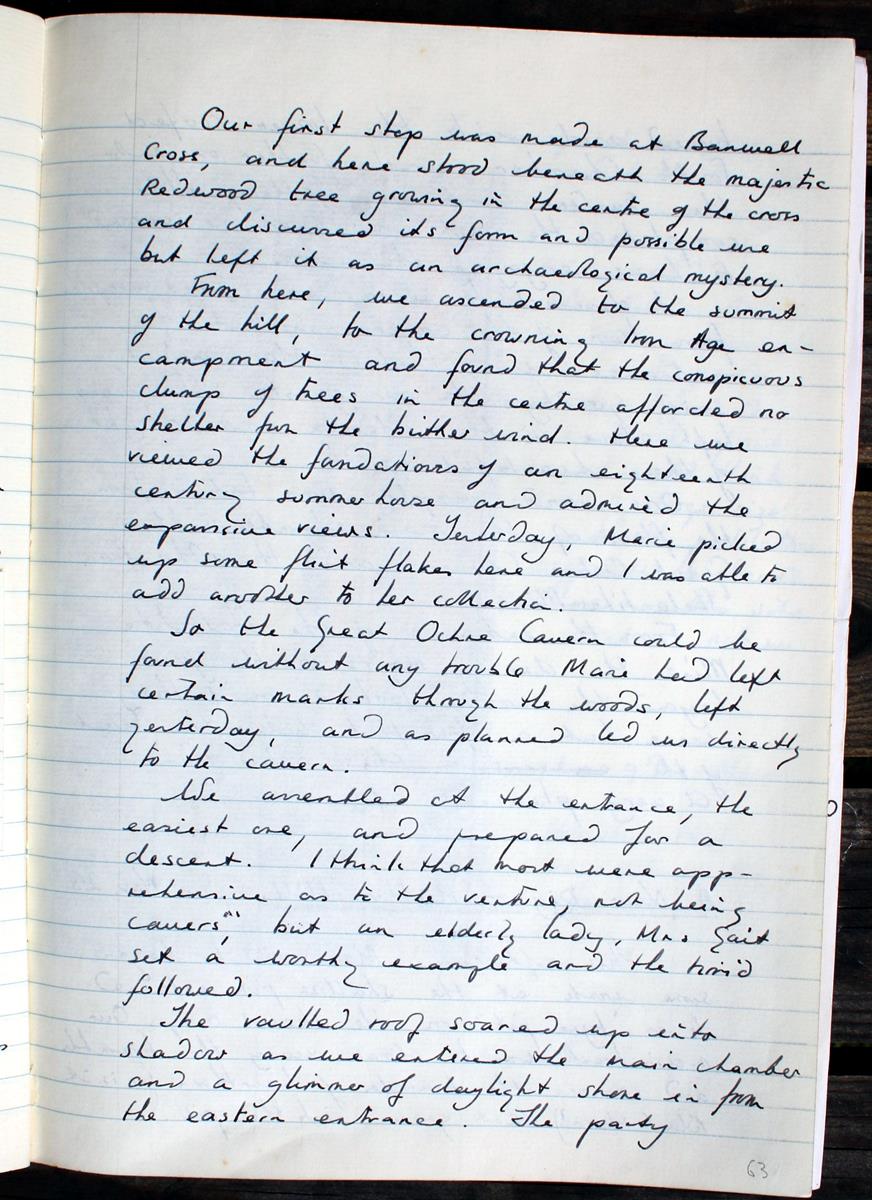 Our first stop was made at Banwell
Cross, and here stood beneath the majestic
Redwood tree growing in the centre of the cross
and discussed its form and possible use
but left it as an archaeological mystery.
From here, we ascended to the summit
of the hill, to the crowning Iron Age en-
campment and found that the conspicuous
clump of trees in the centre afforded no
shelter from the bitter wind. Here we
viewed the foundations of an eighteenth
century summerhouse and admired the
expansive views. Yesterday, Marie picked
up some flint flakes here and I was able to
add another to her collection.
So the Great Ochre Cavern could be
found without any trouble Marie had left
certain marks through the woods, left
yesterday, and as planned led us directly
to the cavern.
We assembled at the entrance, the
easiest one, and prepared for a
descent. I think that most were app-
rehensive as to the venture, not being
cavers", but an elderly lady, Mrs Gait
set a worthy example and the timid
followed.
The vaulted roof soared up into
shadow as we entered the main chamber
and a glimmer of daylight shone in from
the eastern entrance. The party
63